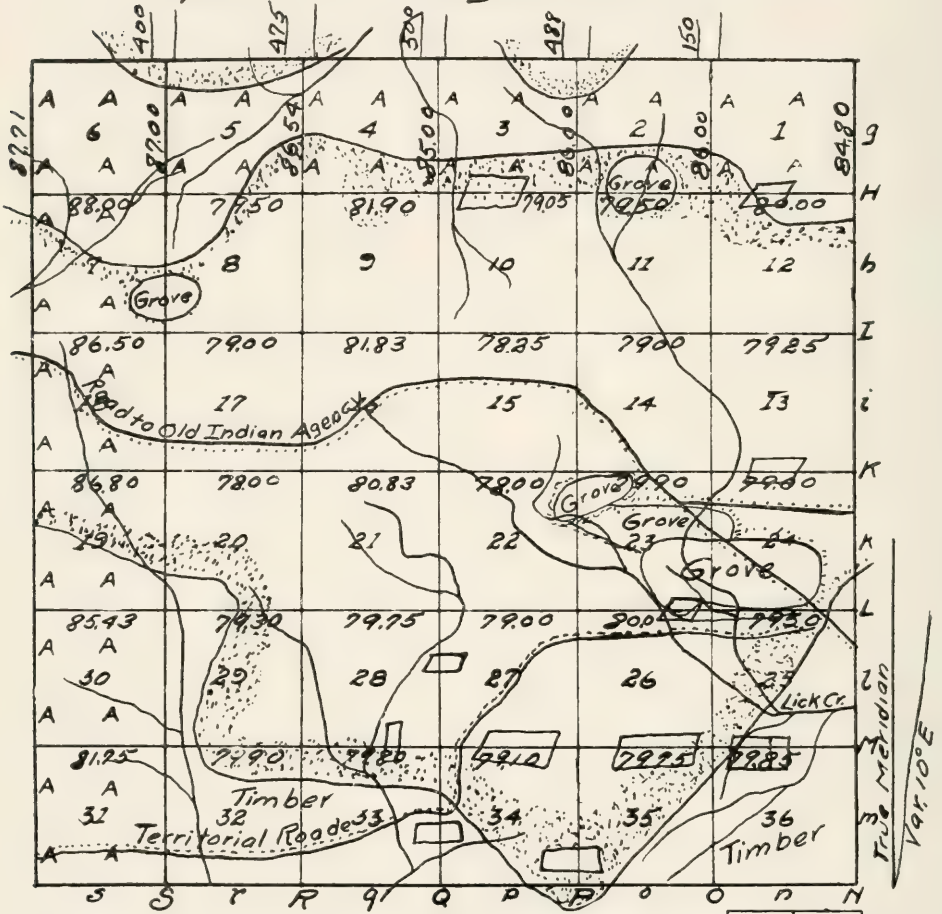 400 475 500 488 150
87.71 87.00 86.54 85.00 86.00 86.00 84.80
A A A A A A A A A A A A
6 5 4 3 2 1 g
A A A A A A A A A A A A
Grove
88.00 79.50 81.90 79.05 79.50 80.00 H
A A
7 8 9 10 11 12 h
A A Grove
86.50 79.00 81.83 78.25 79.00 79.25 I
A A
18 17 15 14 13 i
Road to Old Indian Agency
A A
86.80 78.00 80.83 78.00 79.90 79.00 K
A A Grove
Grove
19 20 21 22 23 24 K
A A Grove
85.43 79.30 79.75 79.00 80.0 79.50 L
A A
30 29 28 27 26 25 l
Lick Cr.
A A
81.75 79.90 79.80 79.10 79.75 79.85 M
A A Timber
31 32 33 34 35 36 m
Territorial Roade
Timber
A A
S S r R q Q p P o O n N
True Meridian
Var. 10° E